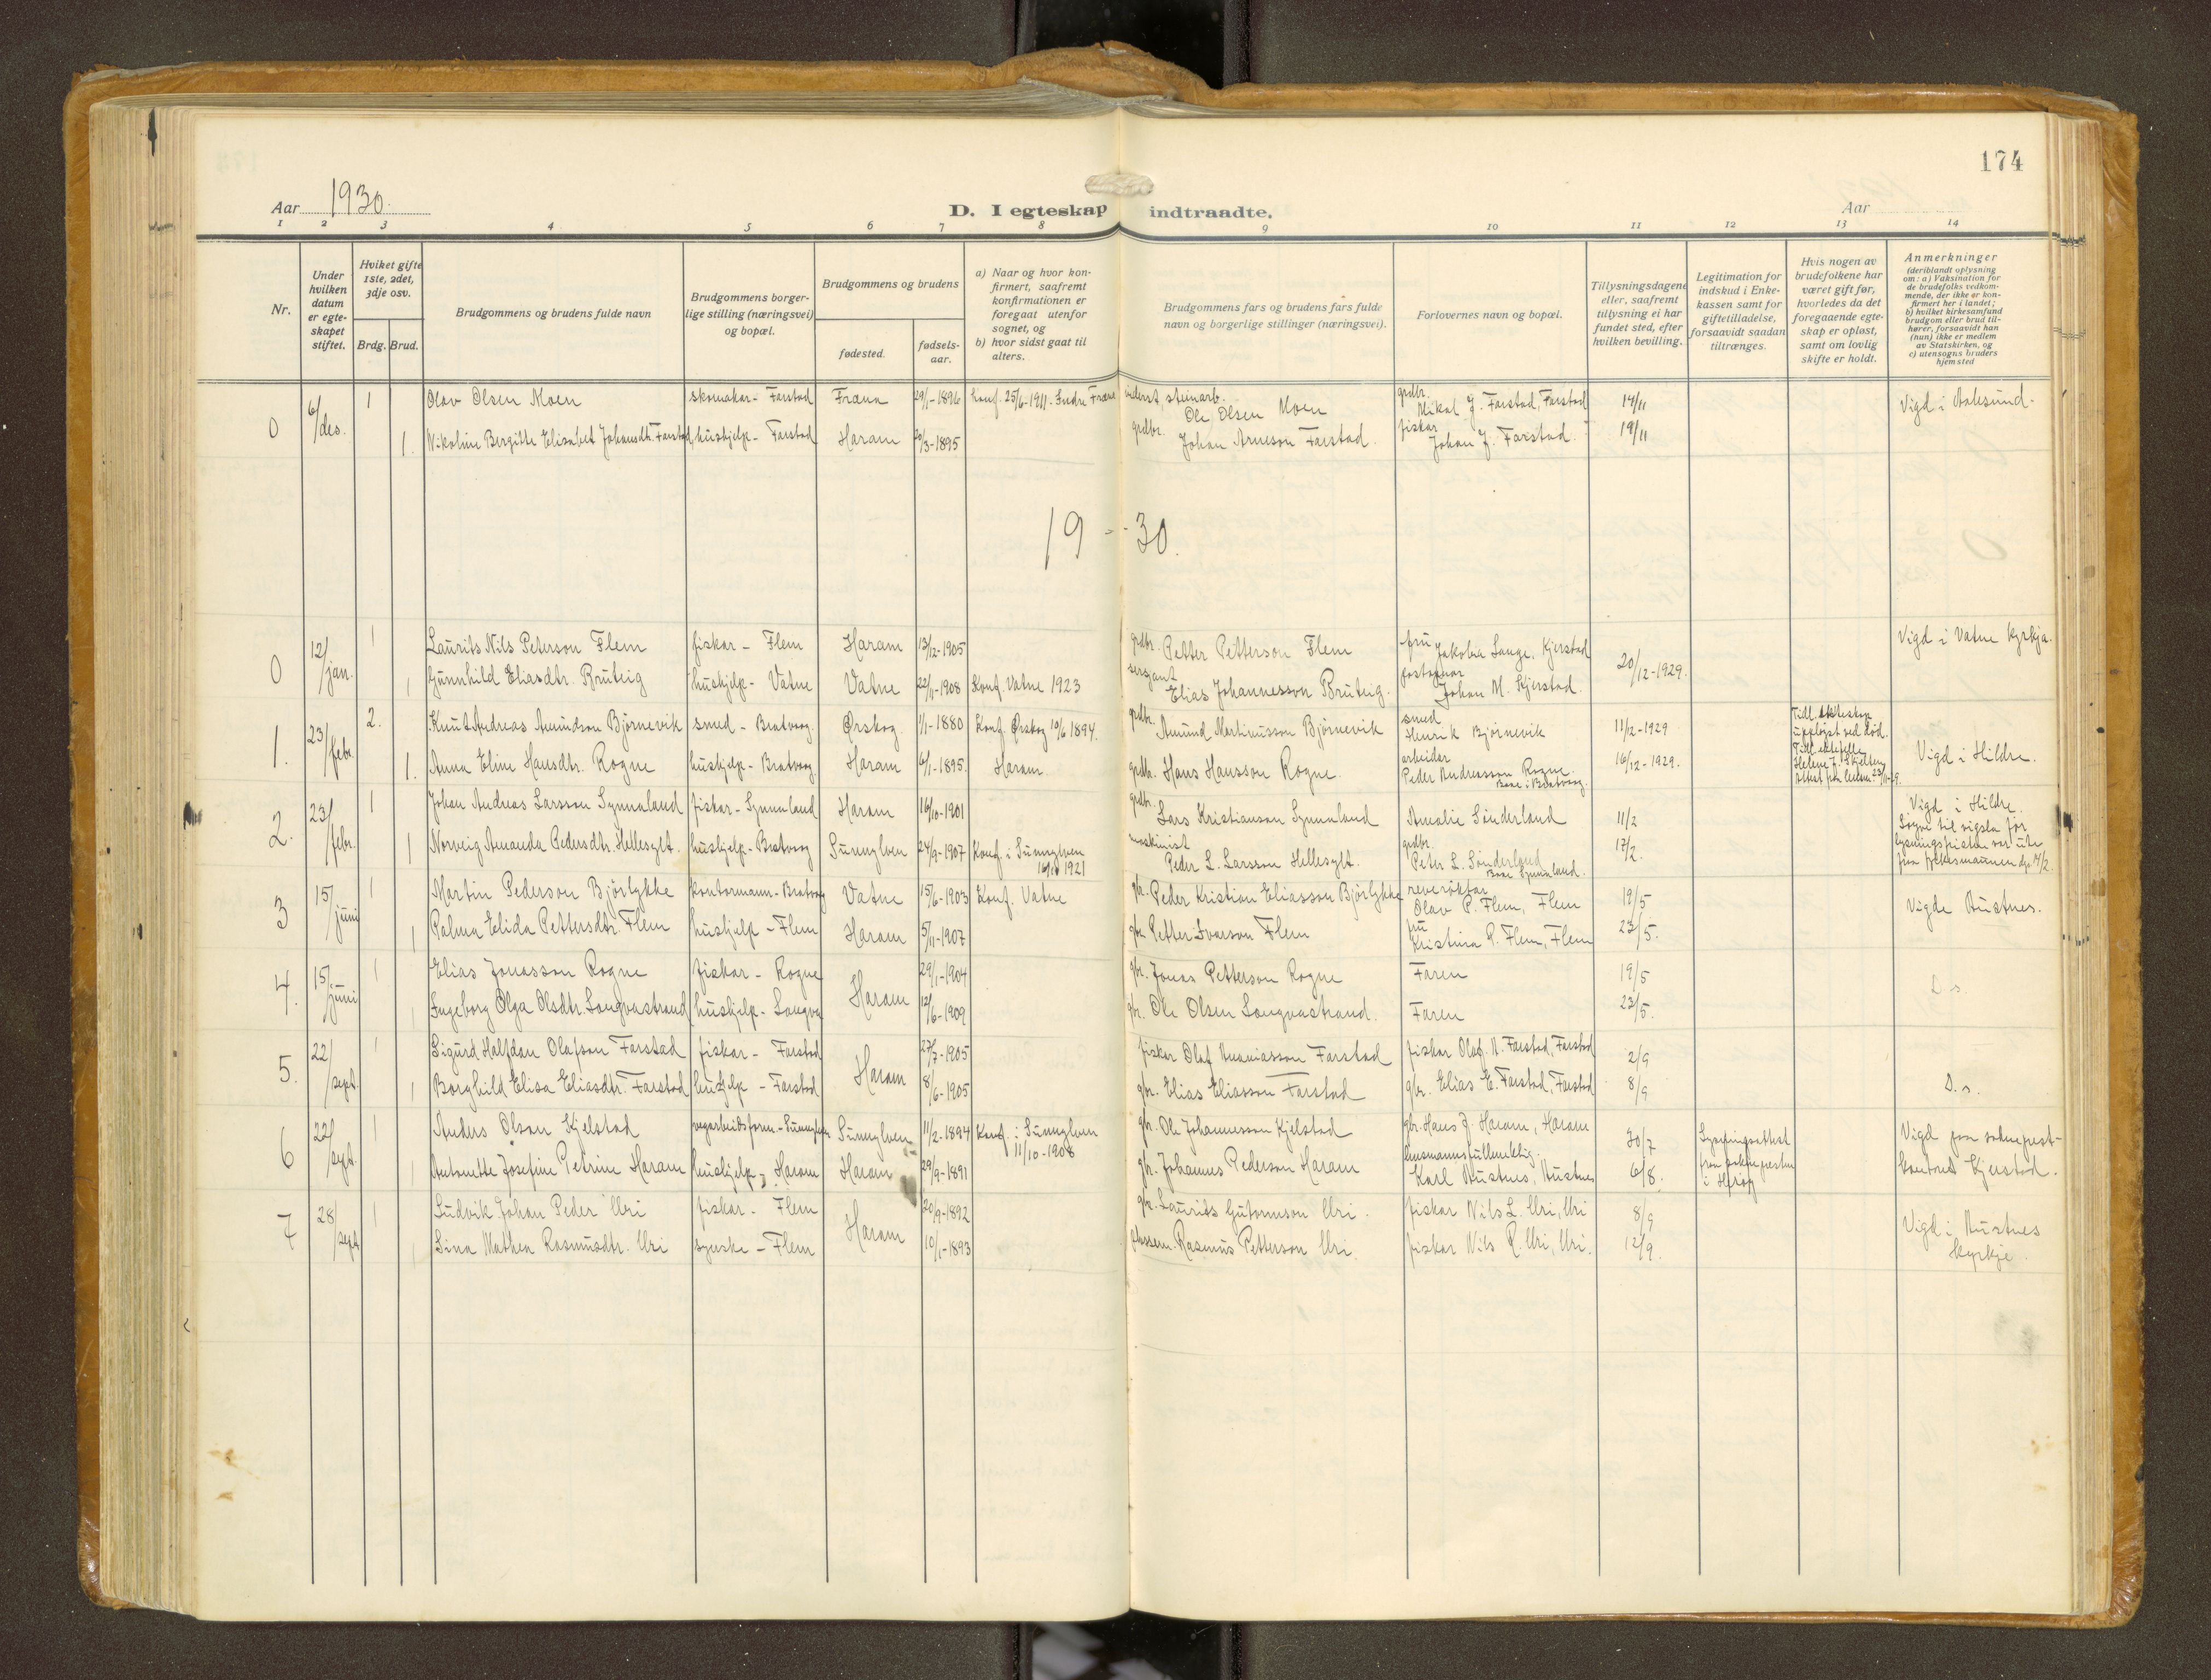 174
Aar 1930.
D. I egteskap indtraadte.
Aar
1 2 3 4 5 6 7 8 9 10 11 12 13 14
Nr.
Under hvilken datum er egteskapet stiftet.
Hviket gifte 1ste, 2det, 3dje osv.
Brdg. Brud.
Brudgommens og brudens fulde navn
Brudgommens borgerlige stilling (næringsvei) og bopæl.
Brudgommens og brudens
fødested. fødselsaar.
a) Naar og hvor konfirmert, saafremt konfirmationen er foregaat utenfor sognet, og
b) hvor sidst gaat til alters.
Brudgommens fars og brudens fars fulde navn og borgerlige stillinger (næringsvei).
Forlovernes navn og bopæl.
Tillysningsdagene eller, saafremt tillysning ei har fundet sted, efter hvilken bevilling.
Legitimation for indskud i Enkekassen samt for giftetilladelse, forsaavidt saadan tiltrænges.
Hvis nogen av brudefolkene har været gift før, hvorledes da det foregaaende egteskap er opløst, samt om lovlig skifte er holdt.
Anmerkninger (deriblandt oplysning om: a) Vaksination for de brudefolks vedkommende, der ikke er konfirmert her i landet; b) hvilket kirkesamfund brudgom eller brud tilhører, forsaavidt han (hun) ikke er medlem av Statskirken, og c) utensogns bruders hjemsted
0 6/des. 1 Olav Olsen Moen skomakar - Farstad Fræna 29/1-1896 Konf. 25/6-1911. Indre Fræna steinarb. Ole Olsen Moen grdbr. Mikal J. Farstad, Farstad 14/11 Vigd i Aalesund.
1. Nikoline Bergitte Elisabet Johansdtr. Farstad hushjelp - Farstad Haram 20/3-1895 grdbr. Johan Arneson Farstad. fiskar Johan J. Farstad. 19/11
19 - - 30.
0 12/jan. 1 Laurits Nils Peterson Flem fiskar - Flem Haram 13/12-1905 grdbr. Petter Petterson Flem fru Jakobia Lange. Kjerstad 20/12-1929. Vigd i Vatne kyrkja.
1 Gunnhild Eliasdtr. Bruteig hushjelp - Vatne Vatne 22/11-1908 Konf. Vatne 1923 sersjant Elias Johannesson Bruteig. Johan M. Kjerstad.
1. 23/febr. 2. Knut Andreas Amundson Bjørnevik smed - Bratvaag. Ørskog. 1/1-1880 Konf. Ørskog 10/6 1894. grdbr. Amund Martinusson Bjørnevik smed Henrik Bjørnevik 11/12-1929 Tidl. ekteskap uppløyst ved død.
1. Anna Eline Hansdtr. Rogne hushjelp - Bratvaag. Haram 6/1-1895. Haram grdbr. Hans Hansson Rogne. arbeidar Peder Andreasson Rogne. Baae i Bratvaag. 16/12-1929. Vigd i Hildre.
2. 23/febr. 1 Johan Andreas Larsson Synnaland fiskar - Synnaland Haram 16/10-1901 grdbr. Lars Kristianson Synnaland Amalie Sønderland 11/2 Vigd i Hildre.
1 Norveig Amanda Pedersdtr. Hellesylt. hushjelp - Bratvaag Sunnylven 24/9-1907 Konf. i Sunnylven 1921 maskinist Peder L. Larsson Hellesylt. grdbr. Peter L. Sønderland Baae Synnaland. 17/2.
3 15/juni 1 Martin Pederson Bjørlykke kontormann - Bratvaag Vatne 15/6-1903 Konf. Vatne gbr. Peder Kristian Eliasson Bjørlykke reverøktar Olav P. Flem, Flem 19/5 Vigde Austnes.
1 Palma Elida Pettersdtr. Flem hushjelp - Flem Haram 5/11-1907 gbr. Petter Ivarson Flem fru Kristina R. Flem, Flem 23/5.
4. 15/juni 1 Elias Jonasson Rogne fiskar - Rogne Haram 29/1-1904 gbr. Jonas Petterson Rogne Faren 19/5 D. s.
1 Ingeborg Olga Olsdtr. Longvastrand hushjelp - Longva 12/6-1909 gbr. Ole Olsen Longvastrand. Faren 23/5.
5. 22/sept. 1 Sigurd Halfdan Olafson Farstad fiskar - Farstad Haram 27/7-1905 fiskar Olaf Ananiasson Farstad fiskar Olaf. A. Farstad, Farstad 2/9
1 Borghild Elisa Eliasdtr. Farstad hushjelp - Farstad 8/6-1905 gbr. Elias Eliasson Farstad gbr. Elias E. Farstad, Farstad 8/9 D. s.
6 22/sept. 1 Anders Olson Kjelstad Sunnylven 11/2-1894 Konf. i Sunnylven 11/10-1908 gbr. Ole Johannesson Kjelstad gbr. Hans J. Haram, Haram 30/7 Lysningsattest fraa soknepresten i Vigd paa sokneprestkontoret Kjerstad.
1 Antonette Josefine Petrine Haram hushjelp - Haram Haram 29/9-1891 gbr. Johannes Pederson Haram lensmannsfullmektig. Karl Austnes, Austnes 6/8.
7 28/sept. 1 Ludvik Johan Peder Uri fiskar - Flem Haram 20/9-1892 gbr. Laurits Guttormson Uri. fiskar Nils L. Uri, Uri 8/9 Vigd i Austnes kyrkje.
1 Lina Mathea Rasmusdtr. Uri syerske - Flem 10/1-1893 plassem. Rasmus Petterson Uri. fiskar Nils R. Uri, Uri. 12/9.